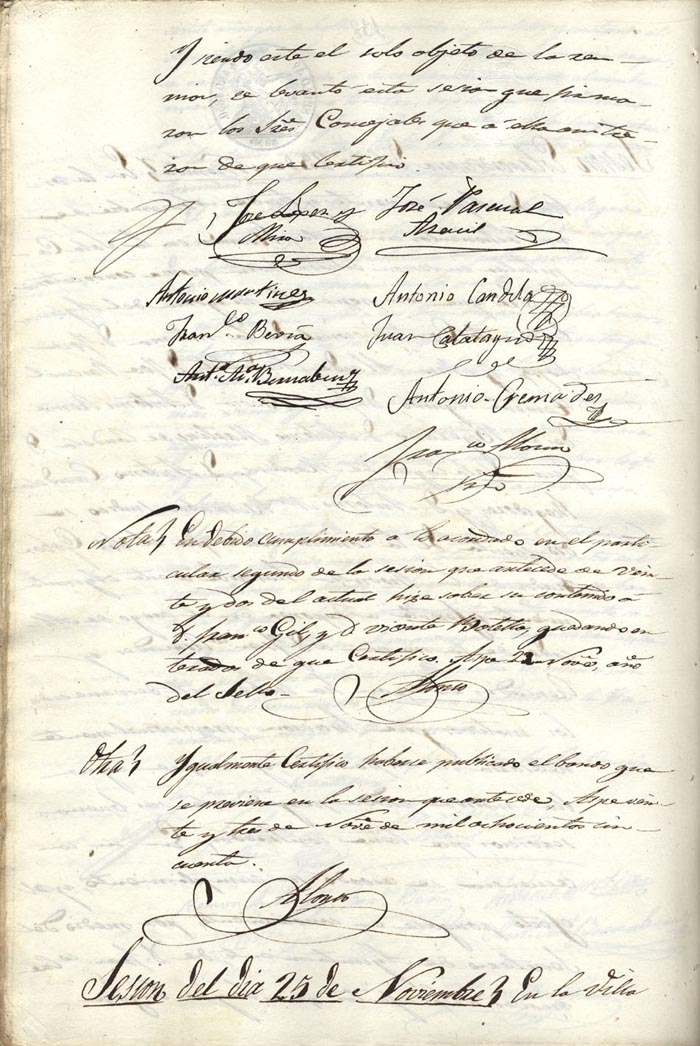 Y siendo este el solo objeto de la reu-
nion, se levantó esta sesion que firma-
ron los Sres Concejales que á ella asistie-
ron de que Certifico.
José López y José Pascual
Mira Aracil
Antonio Martinez Antonio Candela
Franco Beviá Juan Calatayud
Anto Ma Bernabeu
Antonio Cremades
Franco Alonso
Srio
Nota En debido cumplimiento a lo acordado en el parti-
cular segundo de la sesion que antecede de vein-
te y dos del actual hize saber su contenido á
D. Franco Gil, y D. Vicente Botella, quedando en-
terados de que Certifico. Aspe 23 Nove, año
del Sello-
Alonso
Otra Ygualmente Certifico haberse publicado el bando que
se previene en la sesion que antecede, Aspe vein-
te y tres de Nove de mil ochocientos cin-
cuenta.
Alonso
Sesion del dia 25 de Noviembre En la Villa